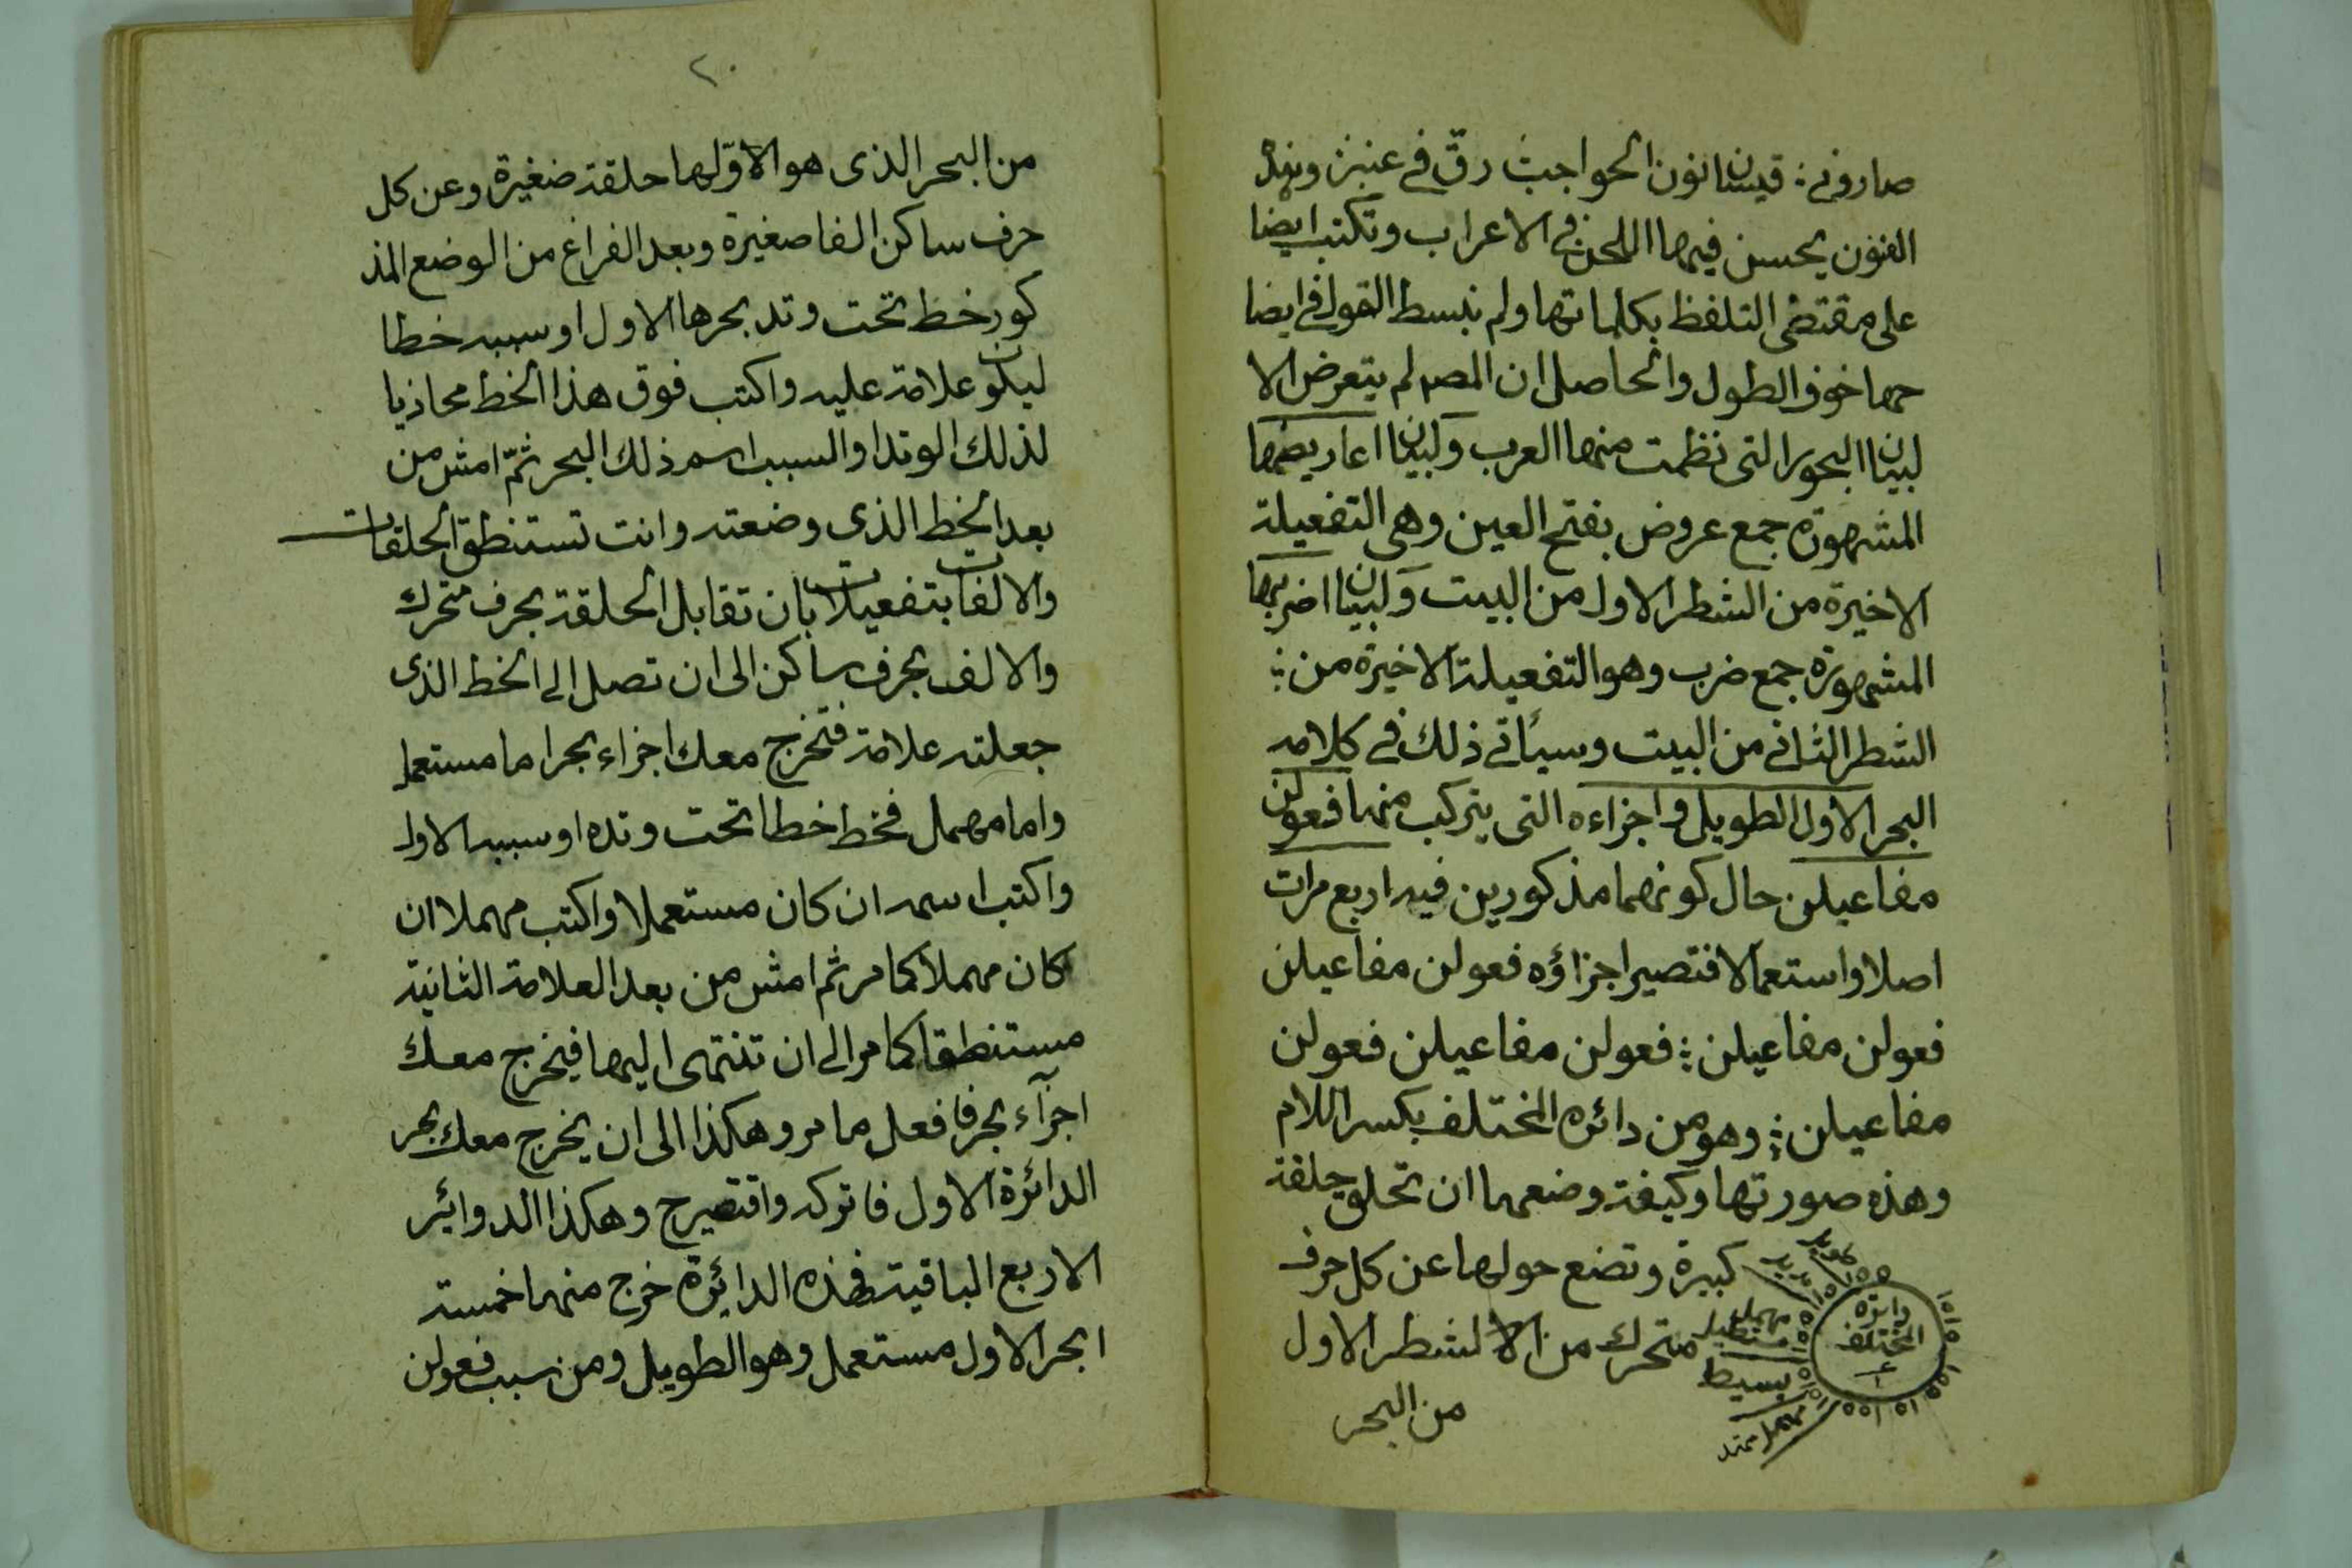 صارونى ؞ قيسان نون الحواجب رق فى عنبر وهذه
الفنون يحسن فيها اللحن فى الاعراب وتكتب ايضا
على مقتضى التلفظ بكلماتها ولم نبسط القول فى ايضا
حها خوف الطول والحاصل ان المصه لم يتعرض الا
لبيان البحور التى نظمت منها العرب ولبيان اعاريضها
المشهورة جمع عروض بفتح العين وهى التفعيلة
الاخيرة من الشطر الاول من البيت ولبيان اضربها
المشهورة جمع ضرب وهو التفعيلة الاخيرة من ؞
الشطر الثانى من البيت وسيأتى ذلك فى كلامه
البحر الاول الطويل واجزاءه التى يتركب منها فعولن
مفاعيلن حال كونهما مذكورين فيه اربع مرات
اصلا واستعمالا فتصير اجزاؤه فعولن مفاعيلن
فعولن مفاعيلن ؞ فعولن مفاعيلن فعولن
مفاعيلن ؞ وهو من دائره المختلف بكسر اللام
وهذه صورتها وكيفة وضعها ان تحلق حلقة
كبيرة وتضع حولها عن كل حرف
متحرك من الشطر الاول
من البحر
دايرة
المختلف
طويل
مديد
مهمل
مستطيل
بسيط
مهمل ممتد
٢٠
من البحر الذى هو الاوّلها حلقة صغيرة وعن كل
حرف ساكن الفا صغيرة وبعد الفراغ من الوضع المذ
كور خط تحت وتد بحرها الاول او سببه خطا
ليكون علامة عليه واكتب فوق هذا الخط محاذيا
لذلك الوتد او السبب اسم ذلك البحر ثمّ امش من
بعد الخط الذى وضعته وانت تستنطق الحلقات
والالفات بتفعيلات بان تقابل الحلقة بحرف متحرك
والالف بحرف ساكن الى ان تصل الى الخط الذى
جعلته علامة فتخرج معك اجزاء بحر اما مستعمل
واما مهمل فخط خطا تحت وتده او سببه الاول
واكتب اسمه ان كان مستعملا واكتب مهملا ان
كان مهملا كما مر ثم امش من بعد العلامة الثانية
مستنطقا كما مر الى ان تنتهى اليها فيخرج معك
اجزآء بحر فافعل ما مر وهكذا الى ان يخرج معك بحر
الدائرة الاول فاتركه واقتصر ح وهكذا الدوائر
الاربع الباقية فهذه الدايرة خرج منها خمسة
ابحر الاول مستعمل وهو الطويل ومن سبب فعولن